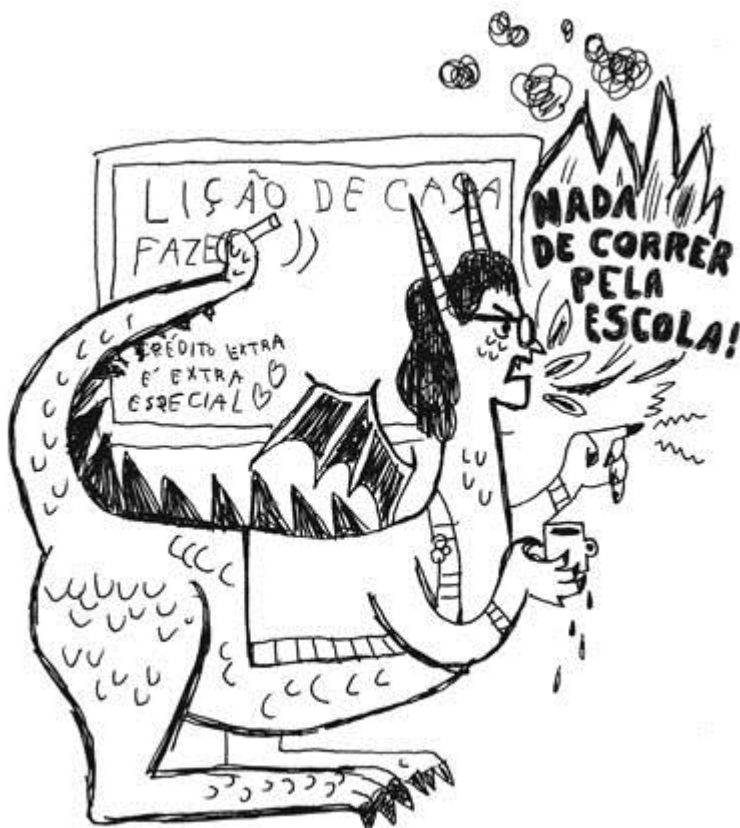 LIÇÃO DE CASA
FAZER
CRÉDITO EXTRA
É EXTRA
ESPECIAL
NADA
DE CORRER
PELA
ESCOLA!